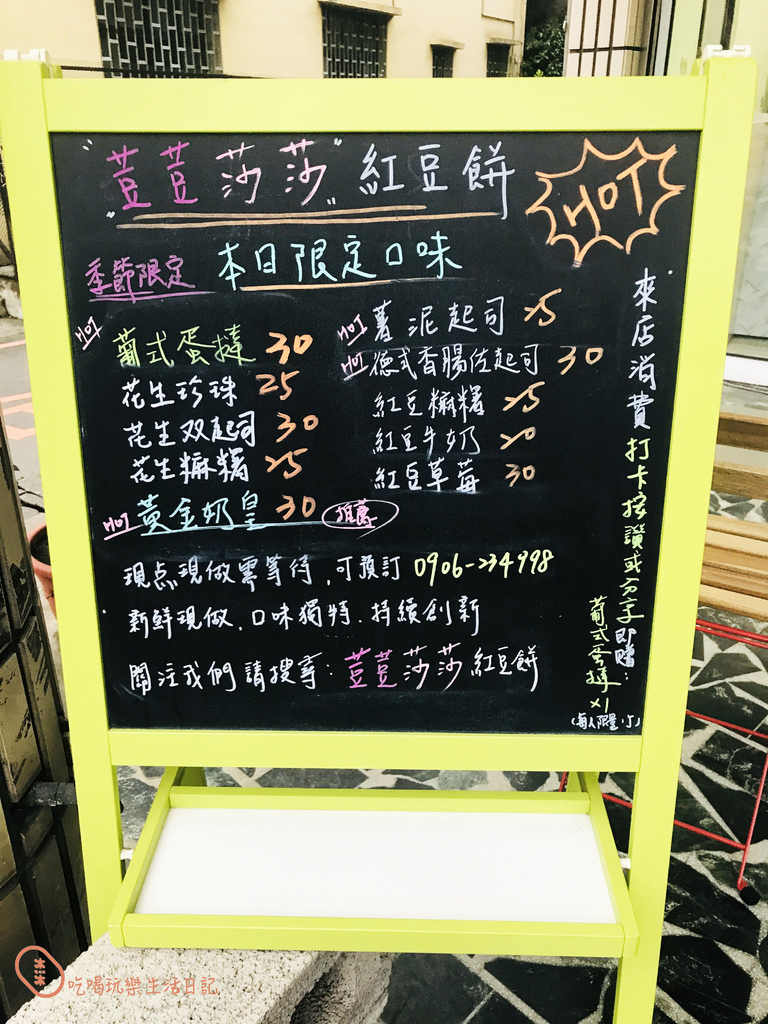 "荳荳莎莎"紅豆餅
HOT
季節限定 本日限定口味
HOT 葡式蛋撻 30
花生珍珠 25
花生双起司 30
花生麻糬 25
HOT 黃金奶皇 30 推薦
HOT 薯泥起司 25
HOT 德式香腸佐起司 30
紅豆麻糬 25
紅豆牛奶 20
紅豆草莓 30
現点現做需等待,可預訂 0906-234998
新鮮現做.口味獨特.持續創新
關注我們請搜尋:荳荳莎莎紅豆餅
來店消費打卡按讚或分享即贈:
葡式蛋撻x1
吃喝玩樂生活日記